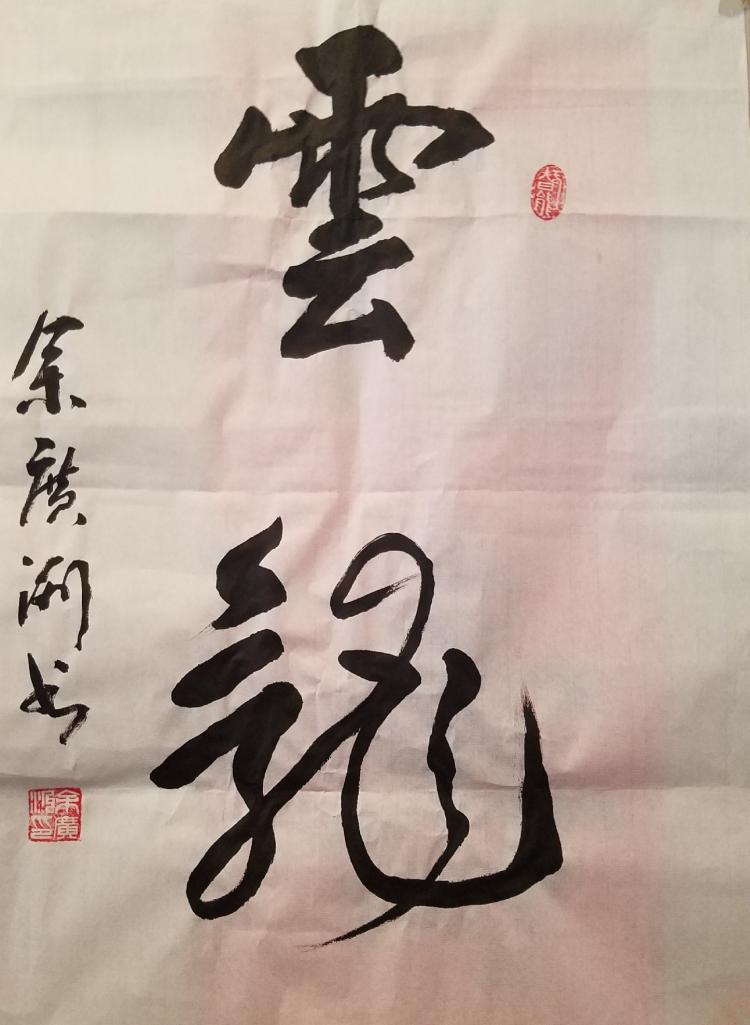 雲龍
余廣洲书
余廣洲印